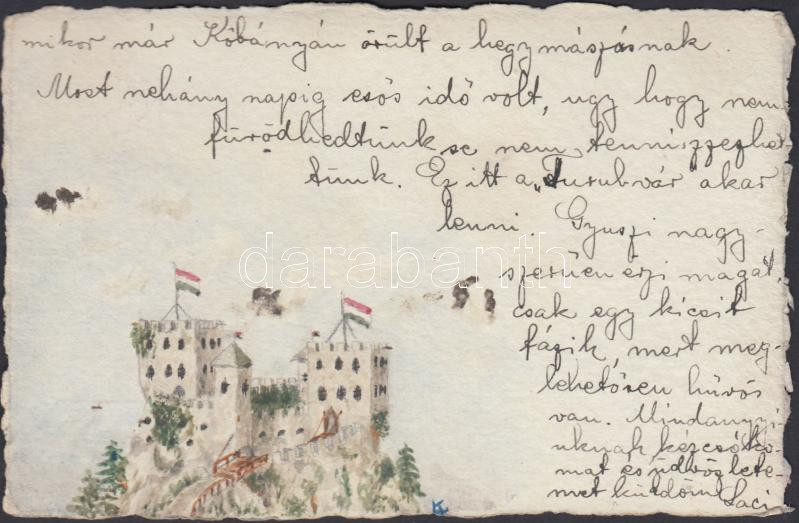 mikor már Kőbányán örült a hegymászásnak.
Most nehány napig esős idő volt, ugy hogy nem
fürödhedtünk se nem tenniszezhet-
tünk. Ez itt a „Turulvár" akar
lenni. Gyuszi nagy-
szerüen érzi magát,
csak egy kicsit
fázik, mert meg-
lehetősen hüvös
van. Mindanyyi-
uknak kézcsóko-
mat és üdvözlete-
met küldöm Laci
darabanth
K.